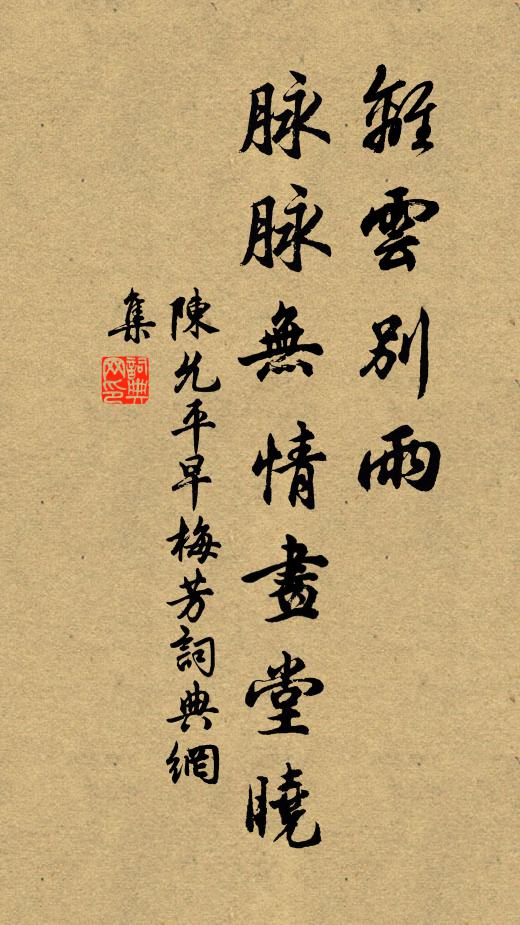 離雲別雨
脉脉無情畫堂曉
陳允平早梅芳詞典網
集
詞典網印